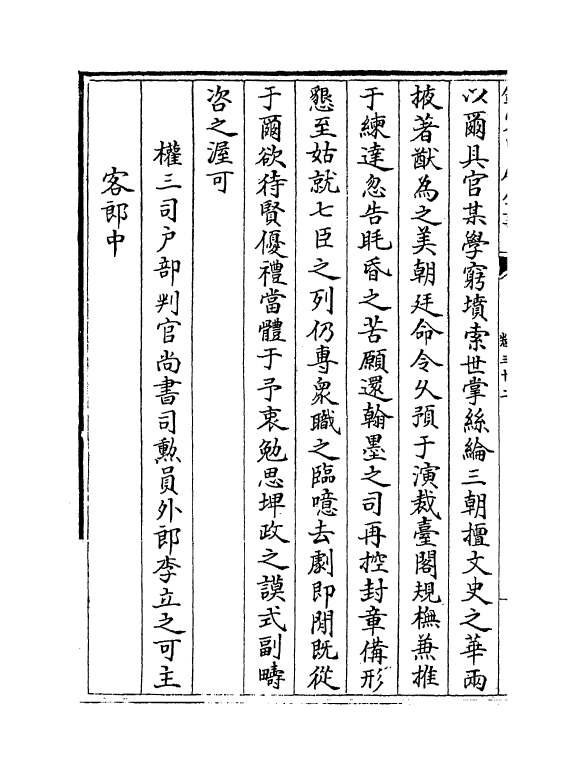 以爾具官某學窮墳索世掌絲綸三朝擅文史之華兩
掖著猷為之美朝廷命令久預于演裁臺閣規橅兼推
于練達忽告眊昏之苦願還翰墨之司再控封章備形
懇至姑就七臣之列仍專衆職之臨噫去劇即閒既從
于爾欲待賢優禮當體于予衷勉思坤政之謨式副疇
咨之渥可
權三司户部判官尚書司勲員外郎李立之可主
客郎中